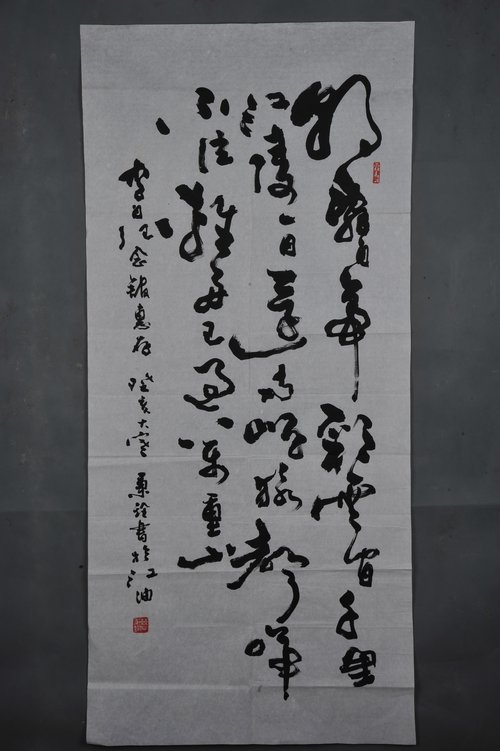 朝辭白帝彩雲間千里
江陵一日還兩岸猿聲啼
不住輕舟已過萬重山
李白紀念館惠存 癸亥大寒 書於江油